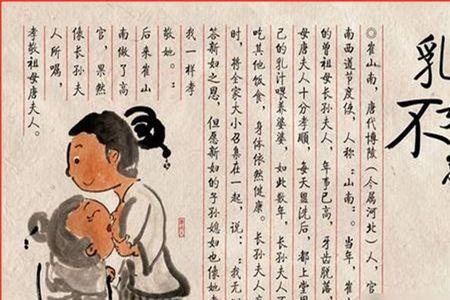 乳
不
◎崔山南，唐代博陵（今属河北）人，官
南西道节度使，人称“山南”。当年，崔
的曾祖母长孙夫人，年事已高，牙齿脱落，
母唐夫人十分孝顺，每天盥洗后，都上堂
己的乳汁喂养婆婆，如此数年，长孙夫人不
吃其他饭食，身体依然健康。长孙夫人
时，将全家大小召集在一起，说：“我无
答新妇之恩，但愿新妇的子孙媳妇也像她
我一样孝
敬她。”
后来崔山
南做了高
官，果然
像长孙夫
人所嘱，
孝敬祖母唐夫人。